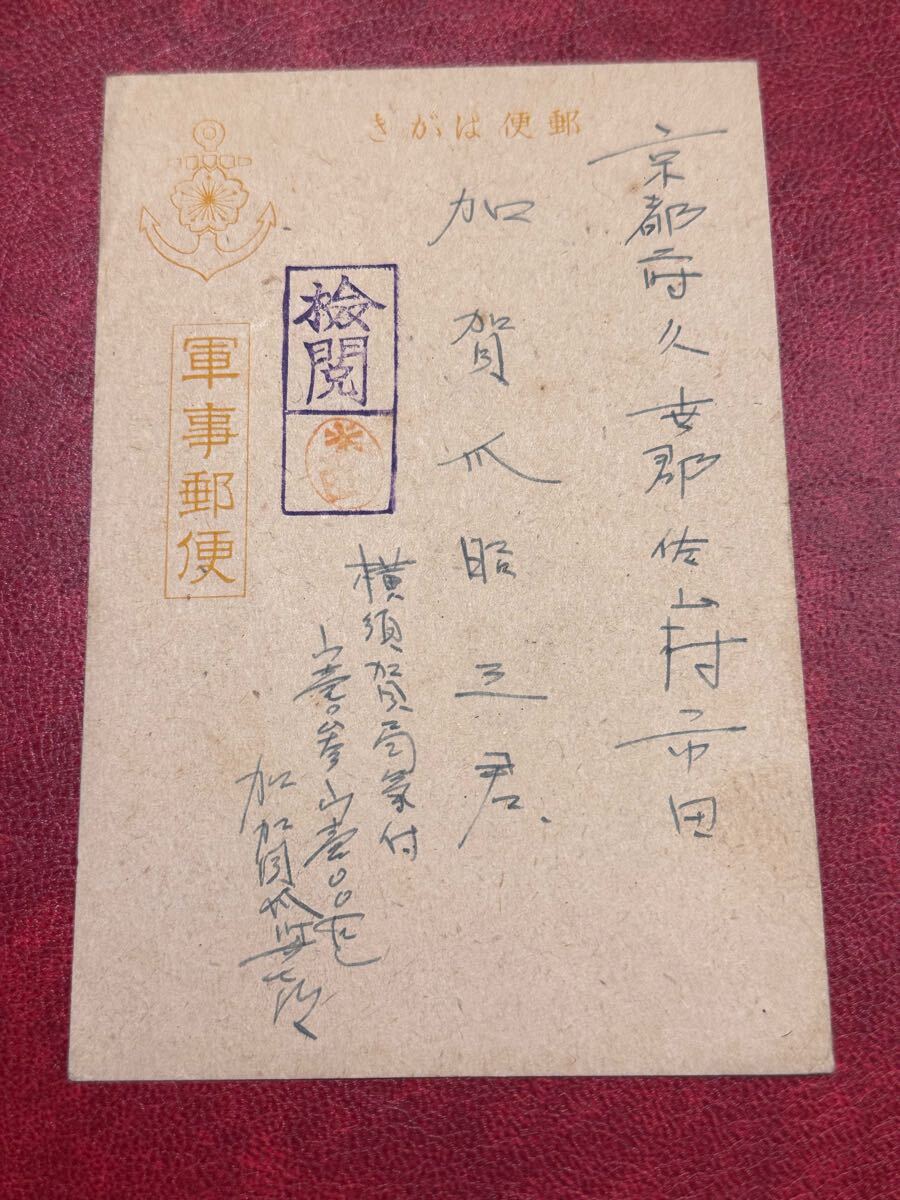 郵便はがき
京都府久世郡佐山村市田
加賀爪昭三君
横須賀局気付
軍事郵便
検閲
加賀爪